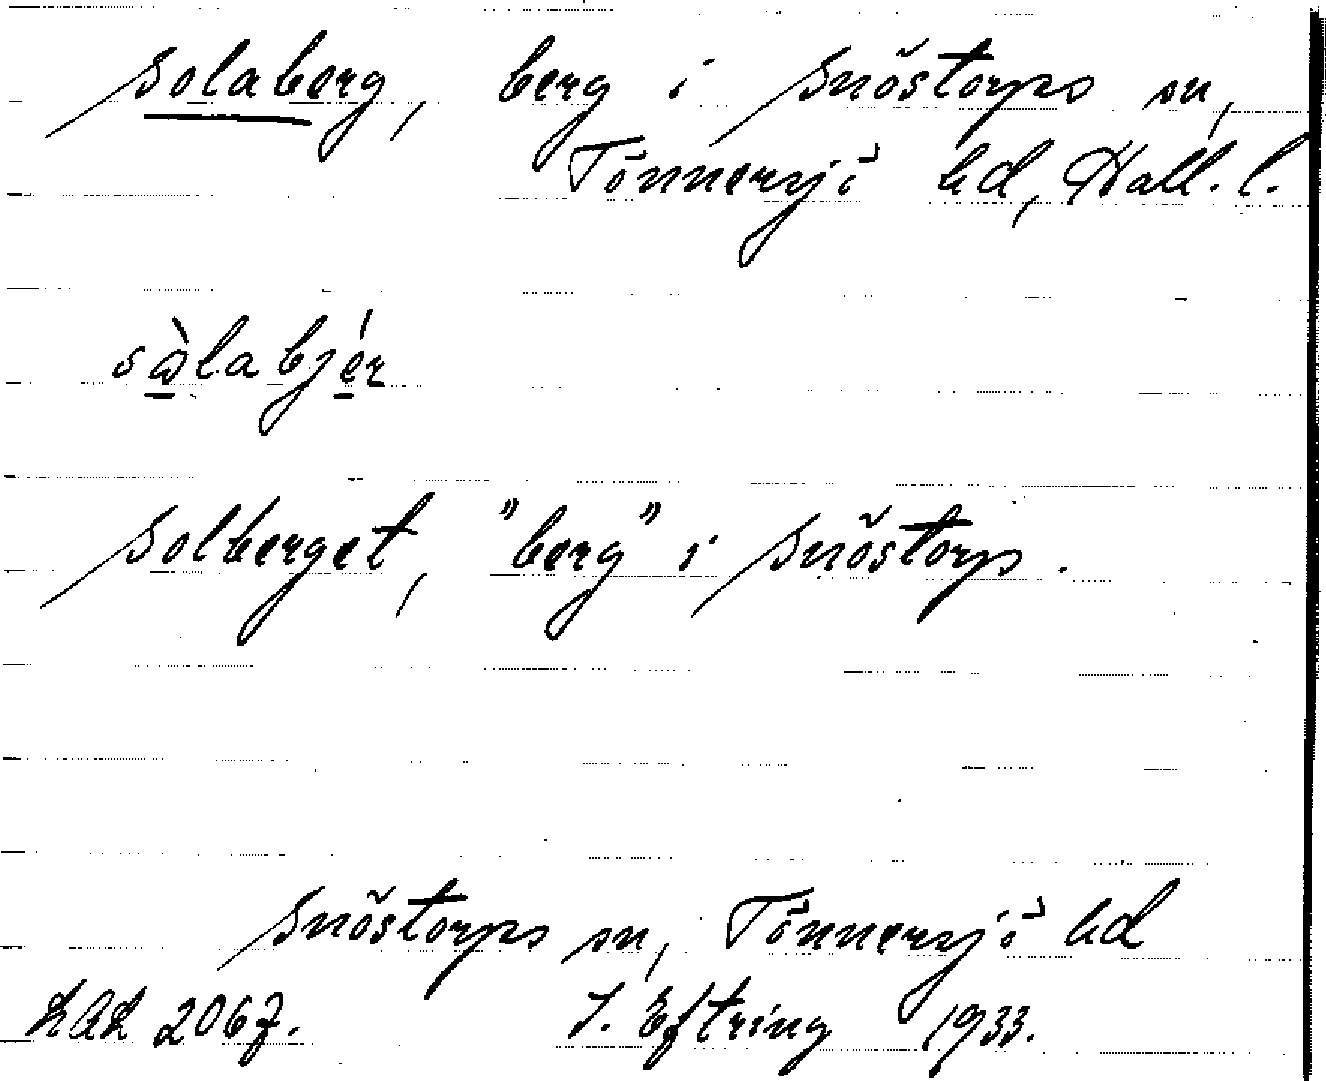 Solaberg, berg i Snöstorps sn,
Tönnersjö hd, Hall. l.
sòlabjér
Solberget, "berg" i Snöstorp.
Snöstorps sn, Tönnersjö hd
LAL 2067. J. Eftring 1933.